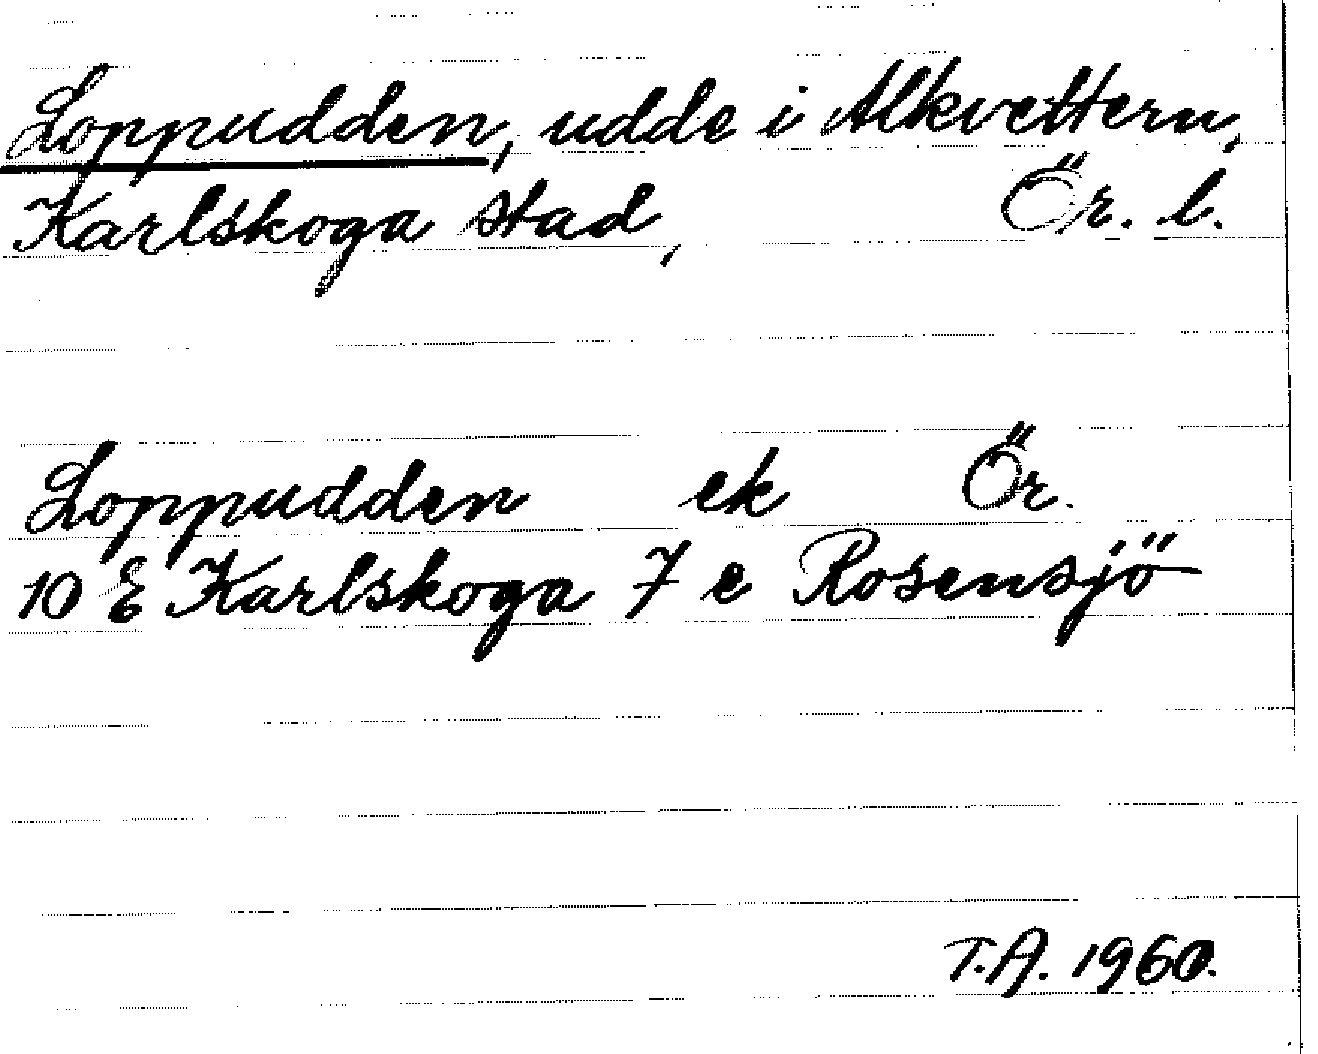 Loppudden, udde i Alkvettern,
Karlskoga stad, Ör. l.
Loppudden ek Ör.
10 E Karlskoga 7 e Rosensjö
T.A. 1960.